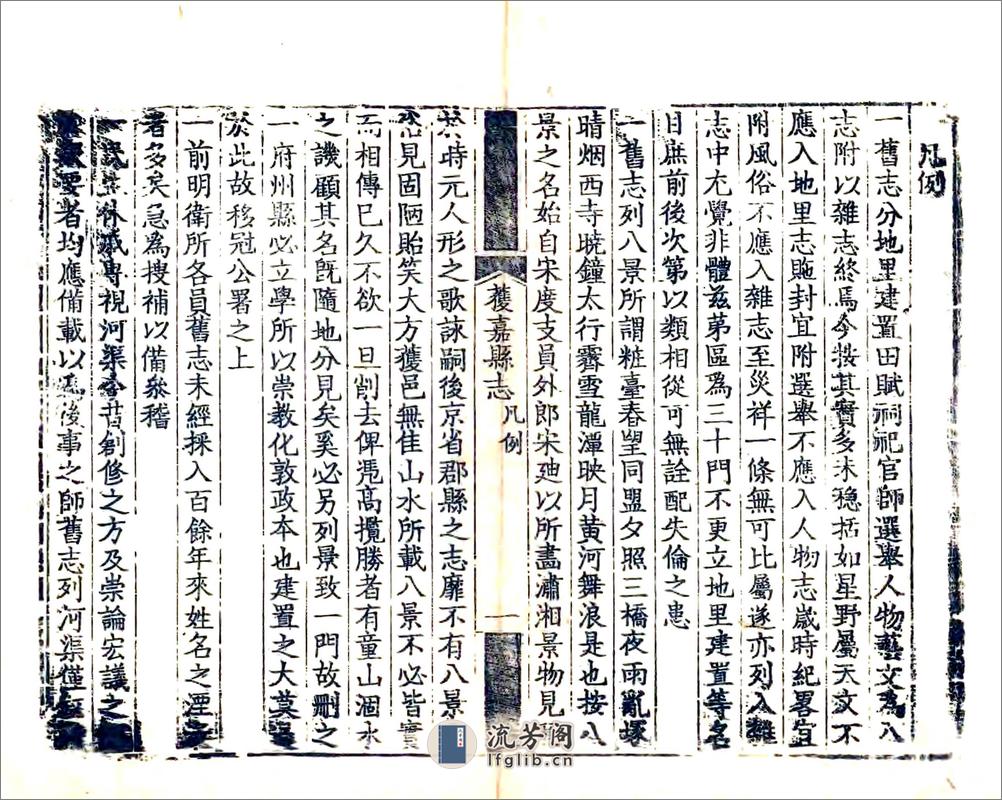 凡例
一舊志分地里建置田賦祠祀官師選舉人物藝文為八
志附以雜志終焉今按其實多未穩括如星野屬天文不
應入地里志貤封宜附選舉不應入人物志歲時紀畧宜
附風俗不應入雜志至災祥一條無可比屬遂亦列入雜
志中尤覺非體茲第區為三十門不更立地里建置等名
目庶前後次第以類相從可無詮配失倫之患
一舊志列八景所謂粧臺春望同盟夕照三橋夜雨亂塚
晴烟西寺曉鐘太行霽雪龍潭映月黃河舞浪是也按八
景之名始自宋度支員外郎宋廸以所畵瀟湘景物見
獲嘉縣志
凡例
一
於時元人形之歌詠嗣後京省郡縣之志靡不有八景
見固陋貽笑大方獲邑無佳山水所載八景不必皆實
而相傳已久不欲一旦削去俾憑高攬勝者有童山涸水
之譏顧其名既隨地分見矣奚必另列景致一門故刪之
一府州縣必立學所以崇教化敦政本也建置之大莫
於此故移冠公署之上
一前明衛所各員舊志未經採入百餘年來姓名之湮
者多矣急為搜補以備叅稽
一民視河渠今昔創修之方及崇論宏議之
要者均應備載以為後事之師舊志列河渠僅
流芳阁
lfglib.cn